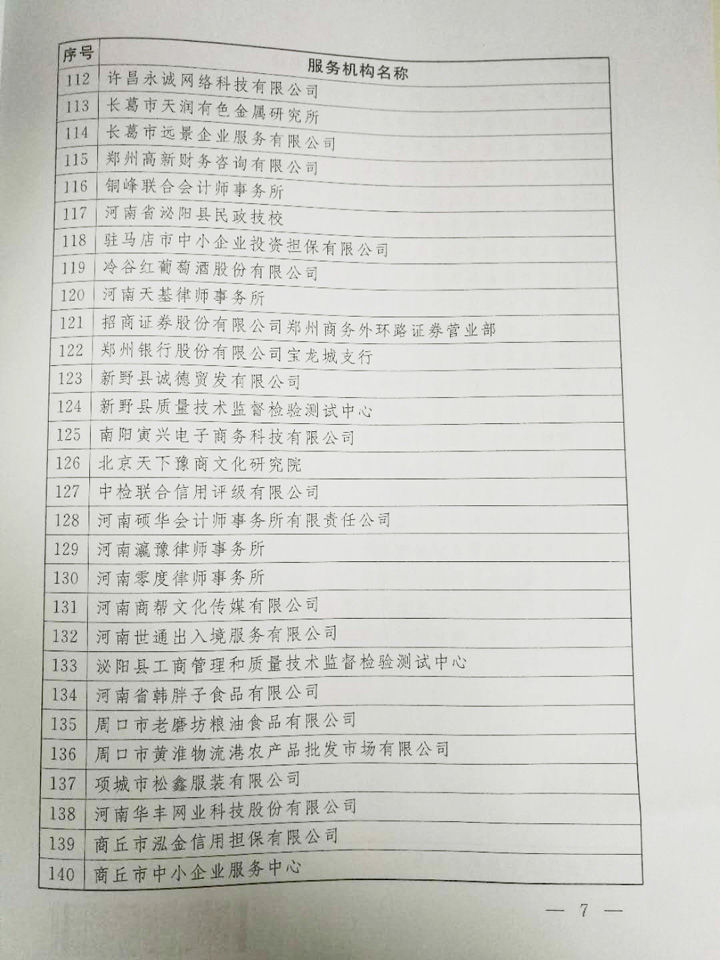 序号 服务机构名称
112 许昌永诚网络科技有限公司
113 长葛市天润有色金属研究所
114 长葛市远景企业服务有限公司
115 郑州高新财务咨询有限公司
116 铜峰联合会计师事务所
117 河南省泌阳县民政技校
118 驻马店市中小企业投资担保有限公司
119 冷谷红葡萄酒股份有限公司
120 河南天基律师事务所
121 招商证券股份有限公司郑州商务外环路证券营业部
122 郑州银行股份有限公司宝龙城支行
123 新野县诚德贸发有限公司
124 新野县质量技术监督检验测试中心
125 南阳寅兴电子商务科技有限公司
126 北京天下豫商文化研究院
127 中检联合信用评级有限公司
128 河南硕华会计师事务所有限责任公司
129 河南瀛豫律师事务所
130 河南零度律师事务所
131 河南商帮文化传媒有限公司
132 河南世通出入境服务有限公司
133 泌阳县工商管理和质量技术监督检验测试中心
134 河南省韩胖子食品有限公司
135 周口市老磨坊粮油食品有限公司
136 周口市黄淮物流港农产品批发市场有限公司
137 项城市松鑫服装有限公司
138 河南华丰网业科技股份有限公司
139 商丘市泓金信用担保有限公司
140 商丘市中小企业服务中心
— 7 —